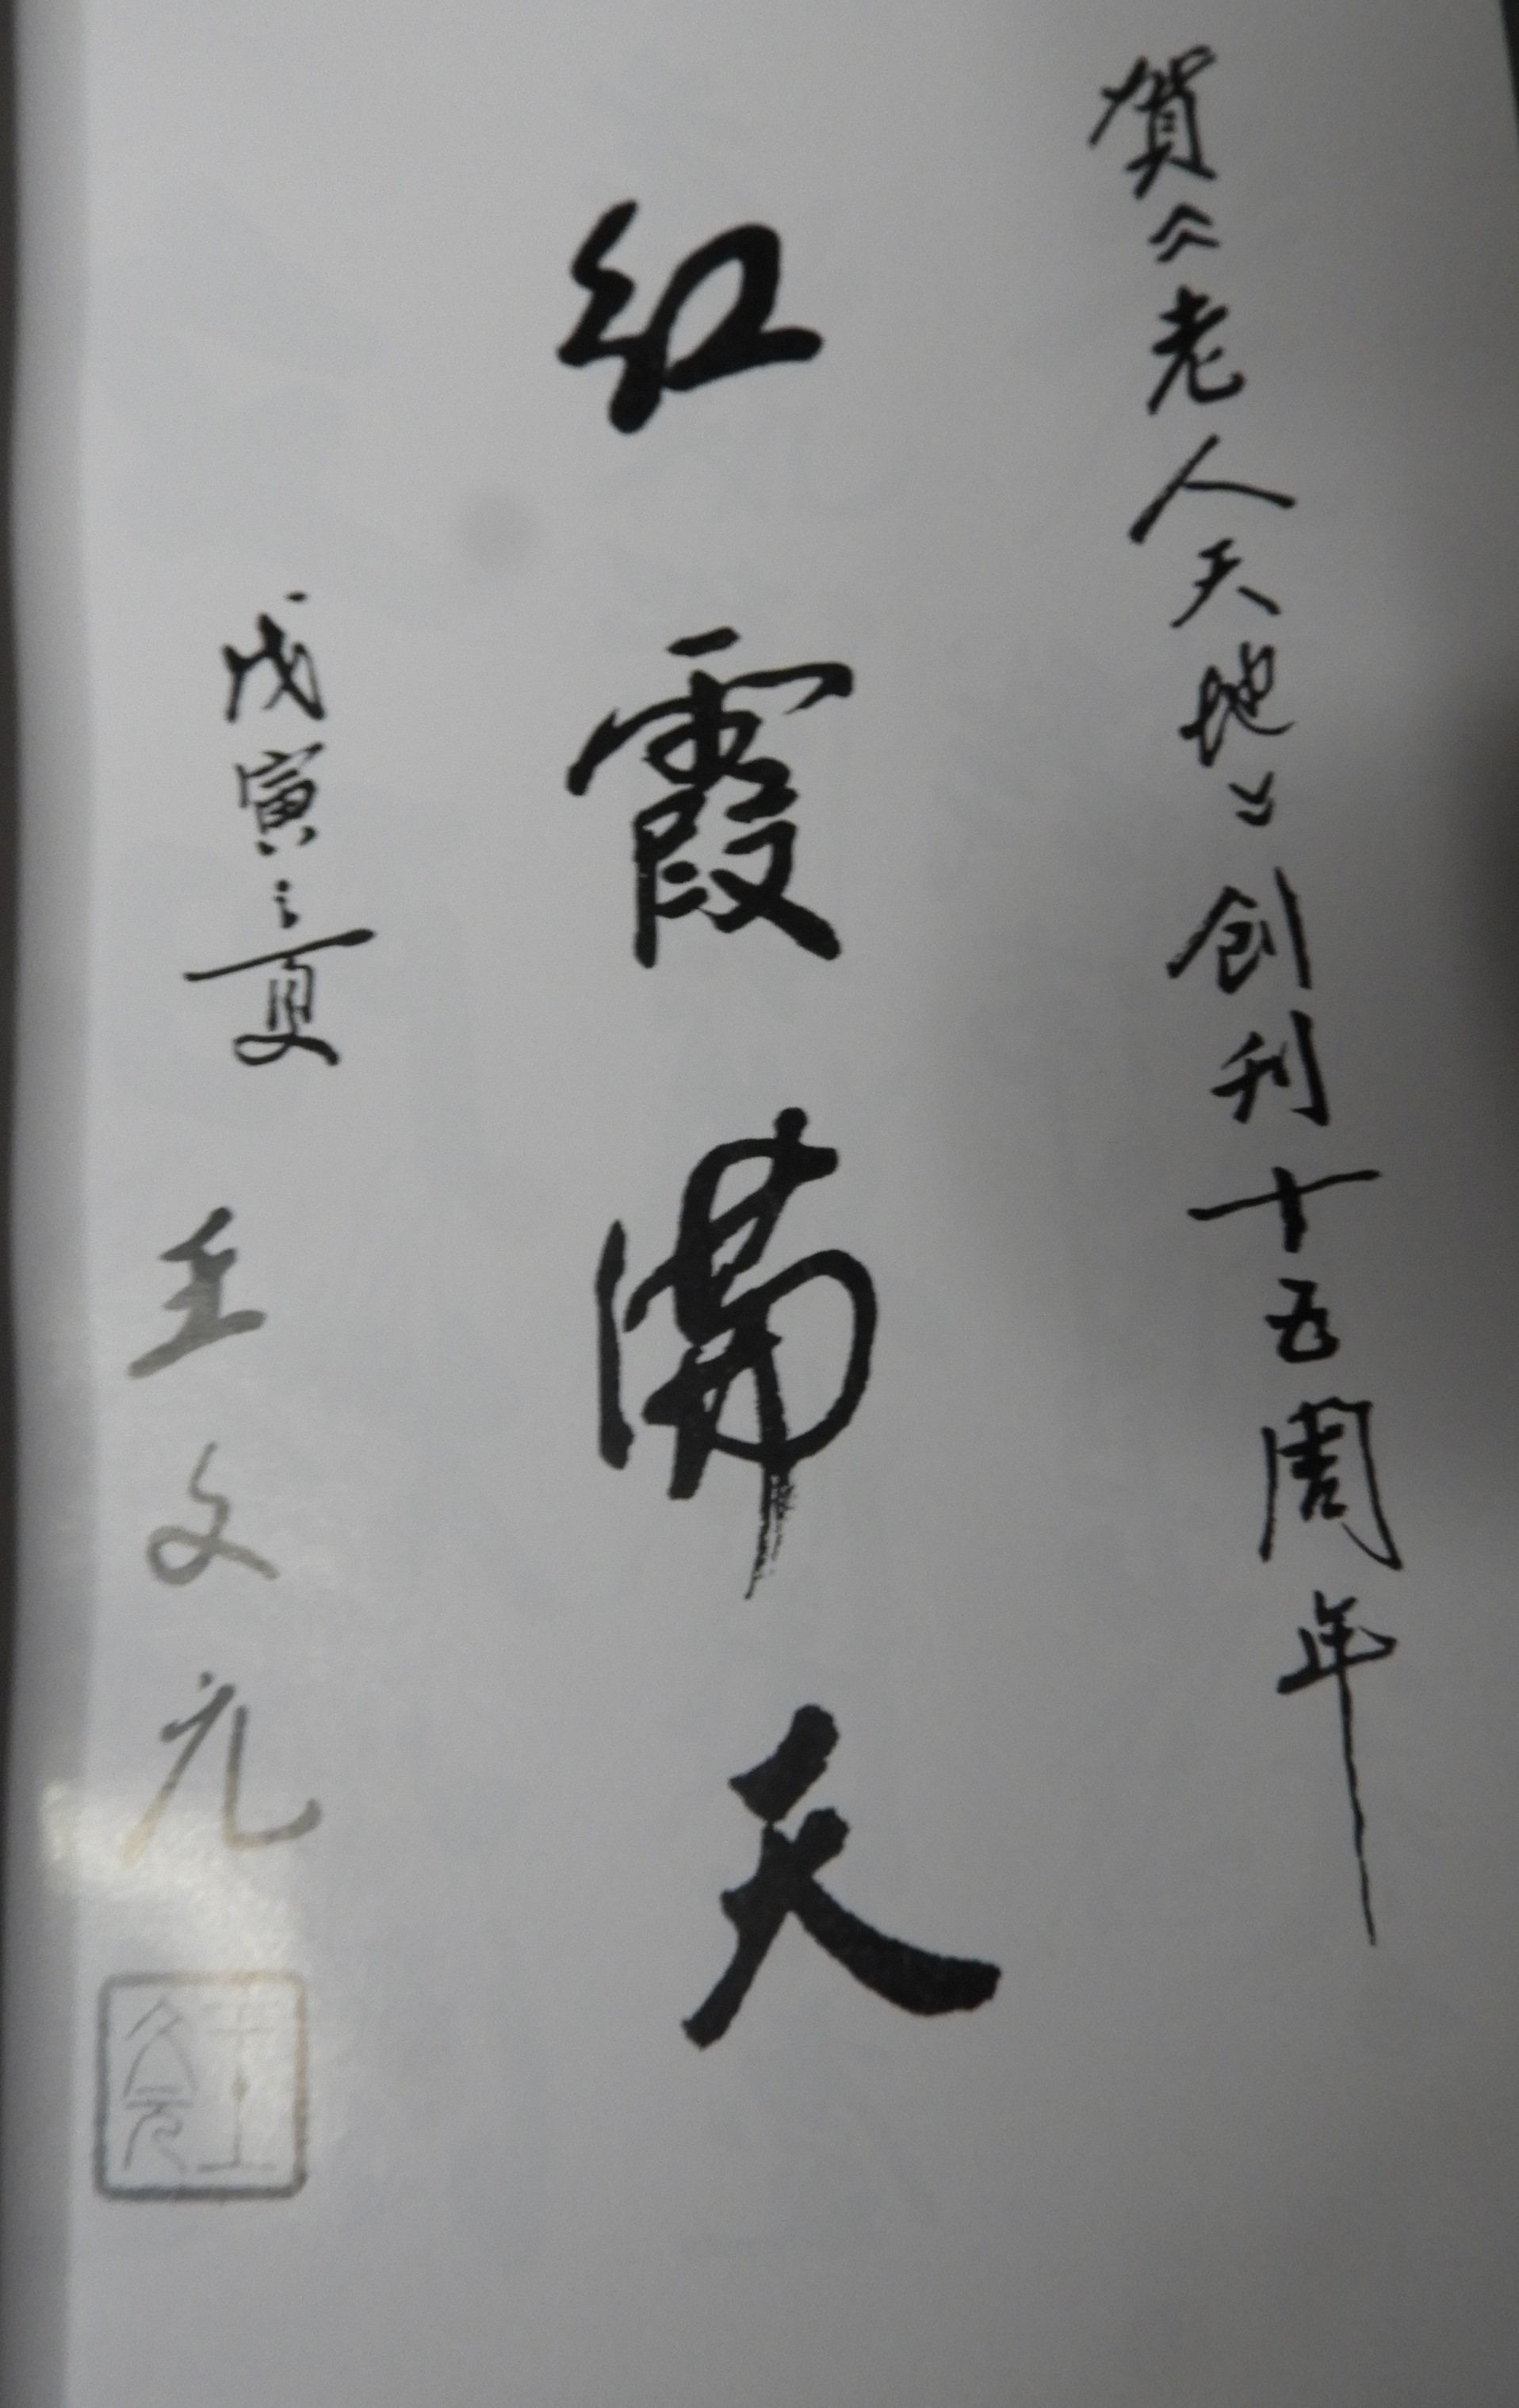 賀《老人天地》創刊十五周年
红霞满天
戊寅之夏
王文元
王文元